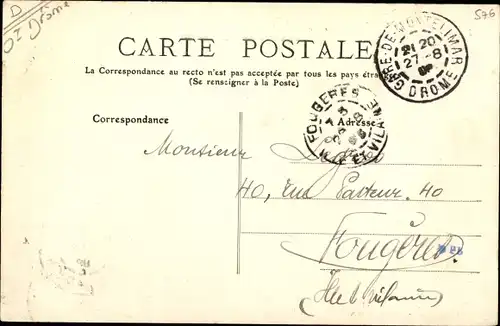 D
Dr Drôme
576
CARTE POSTALE
La Correspondance au recto n'est pas acceptée par tous les pays étra
(Se renseigner à la Poste)
GARE-DE-MONTELIMAR
21 20
27-8
DROME
FOUGERES
ILLE ET VILAINE
Correspondance
Adresse
Monsieur
40, rue Pasteur. 40
Fougères.
(Ille et Vilaine)